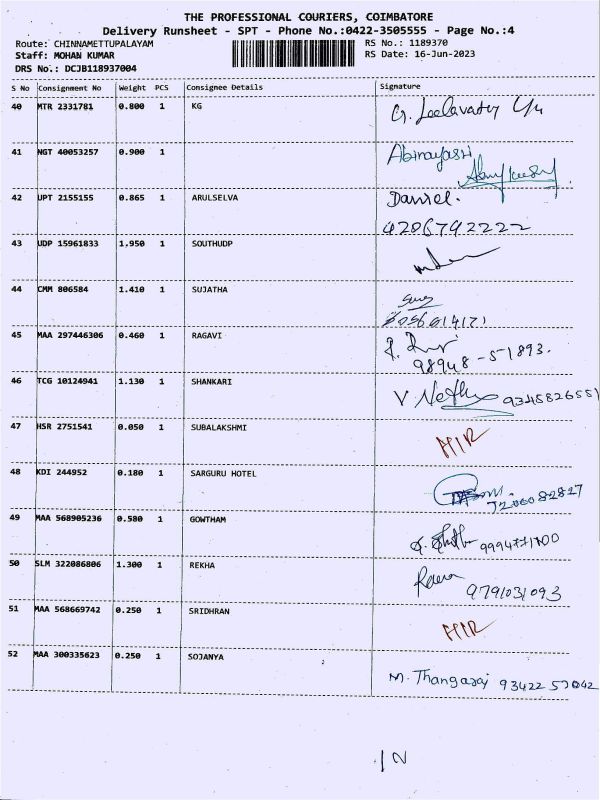 THE PROFESSIONAL COURIERS, COIMBATORE
Delivery Runsheet - SPT - Phone No.:0422-3505555 - Page No.:4
Route: CHINNAMETTUPALAYAM RS No.: 1189370
Staff: MOHAN KUMAR RS Date: 16-Jun-2023
DRS No.: DCJB118937004
S No Consignment No Weight PCS Consignee Details Signature
40 MTR 2331781 0.800 1 KG G. Leelavathy
41 NGT 40053257 0.900 1 Abinayasri
42 UPT 2155155 0.865 1 ARULSELVA Daniel.
4206792222
43 UDP 15961833 1.950 1 SOUTHUDP
44 CMM 806584 1.410 1 SUJATHA
45 MAA 297446306 0.460 1 RAGAVI
98948-51893.
46 TCG 10124941 1.130 1 SHANKARI 9345826551
47 HSR 2751541 0.050 1 SUBALAKSHMI
48 KDI 244952 0.180 1 SARGURU HOTEL
49 MAA 568905236 0.580 1 GOWTHAM
50 SLM 322086806 1.300 1 REKHA
9791031093
51 MAA 568669742 0.250 1 SRIDHRAN
52 MAA 300335623 0.250 1 SOJANYA M. Thangaraj 93422